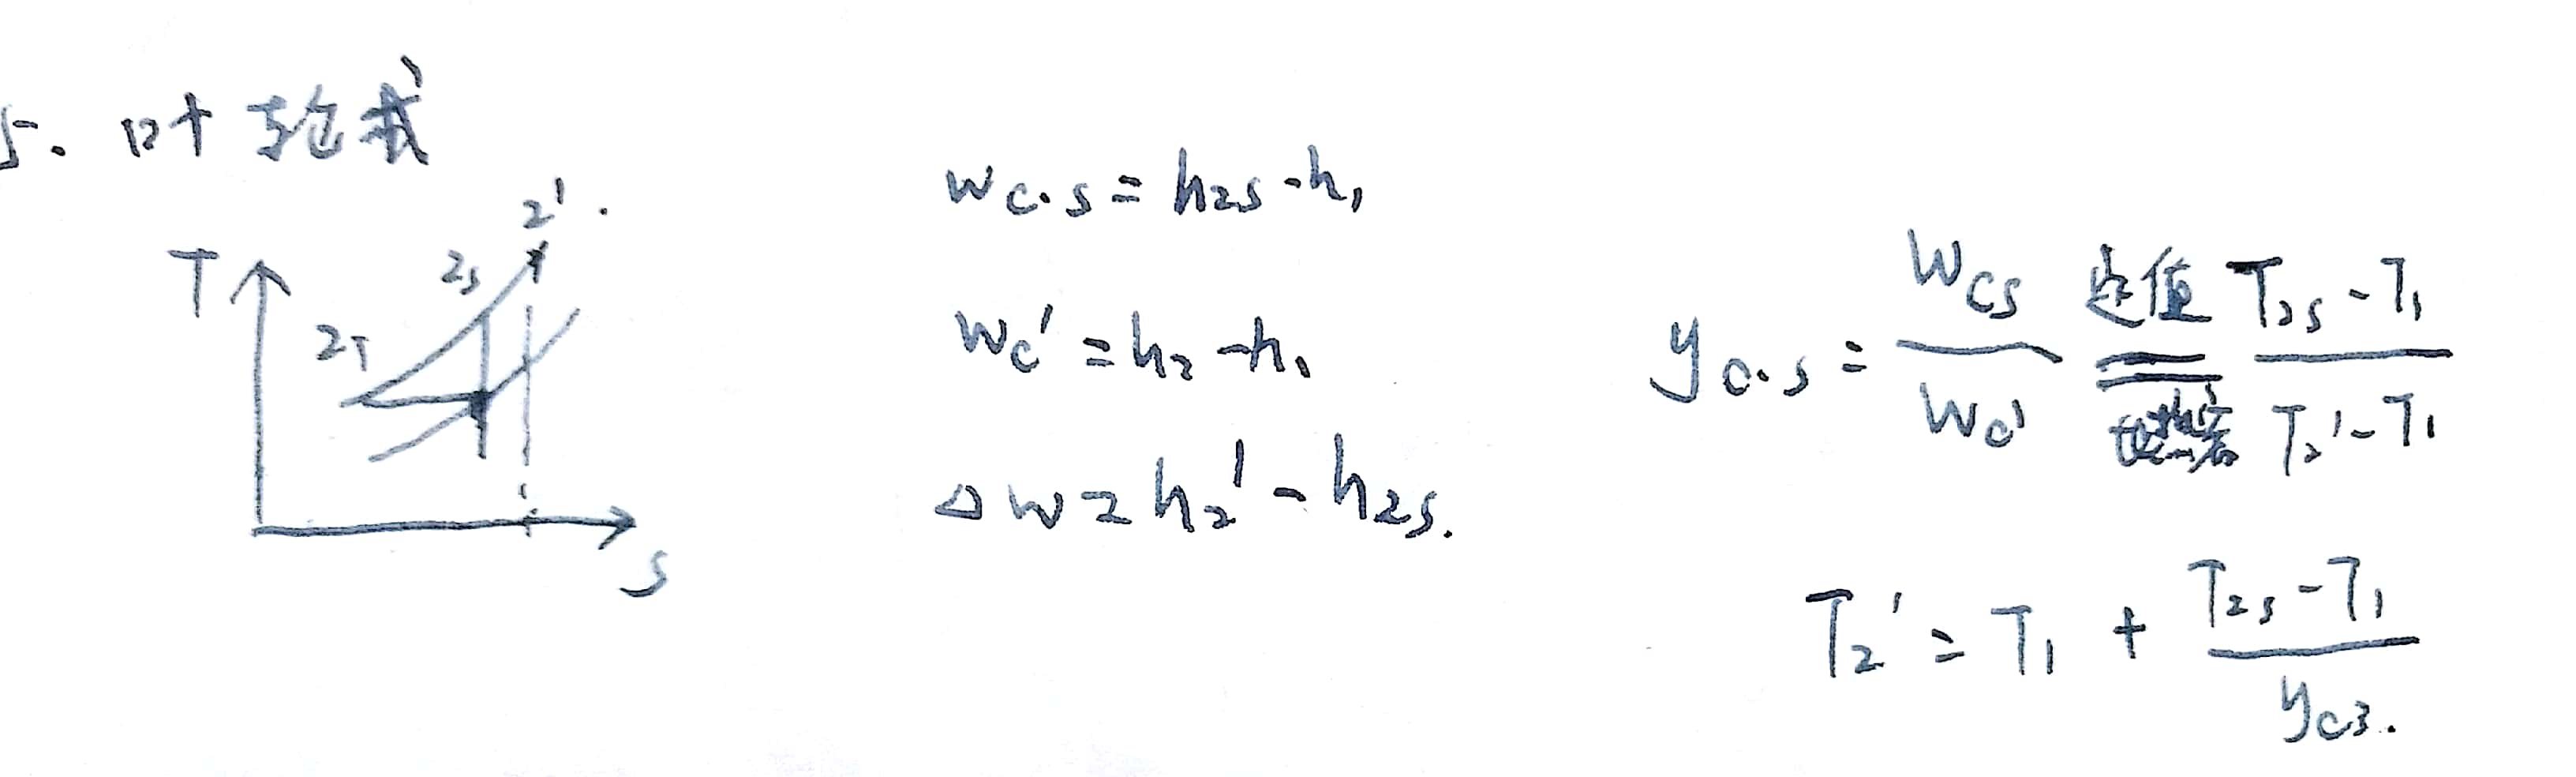 5. 叶轮式
2'.
T
2s
2T
s
Wc.s = h2s - h1
Wc' = h2 - h1
Δw = h2' - h2s.
yc.s = Wcs / Wc' 定值 比热容 = (T2s - T1) / (T2' - T1)
T2' = T1 + (T2s - T1) / ycs.